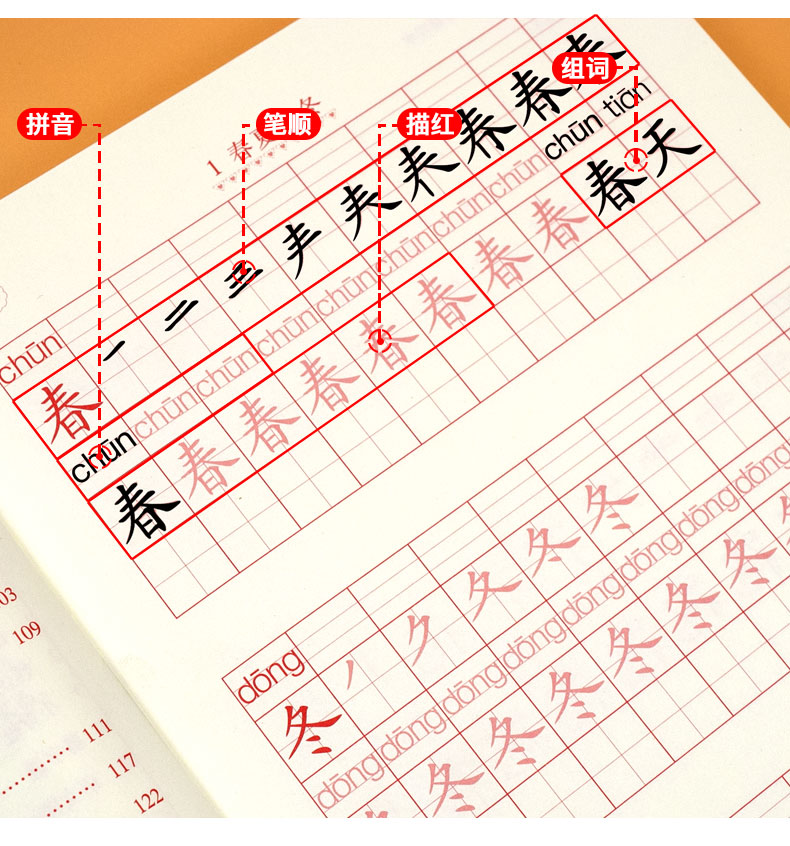 拼音
笔顺
描红
组词
1 春夏 冬
chūn
春 一 二 三 春 春 春
chūn chūn chūn chūn chūn chūn chūn chūn chūn tiān
春 春 春 春 春 春 春 春 春天
dōng
冬 丿 ク 夂 冬 冬
dōng dōng dōng dōng dōng dōng dōng dōng
冬 冬 冬 冬 冬 冬
03
109
111
117
122